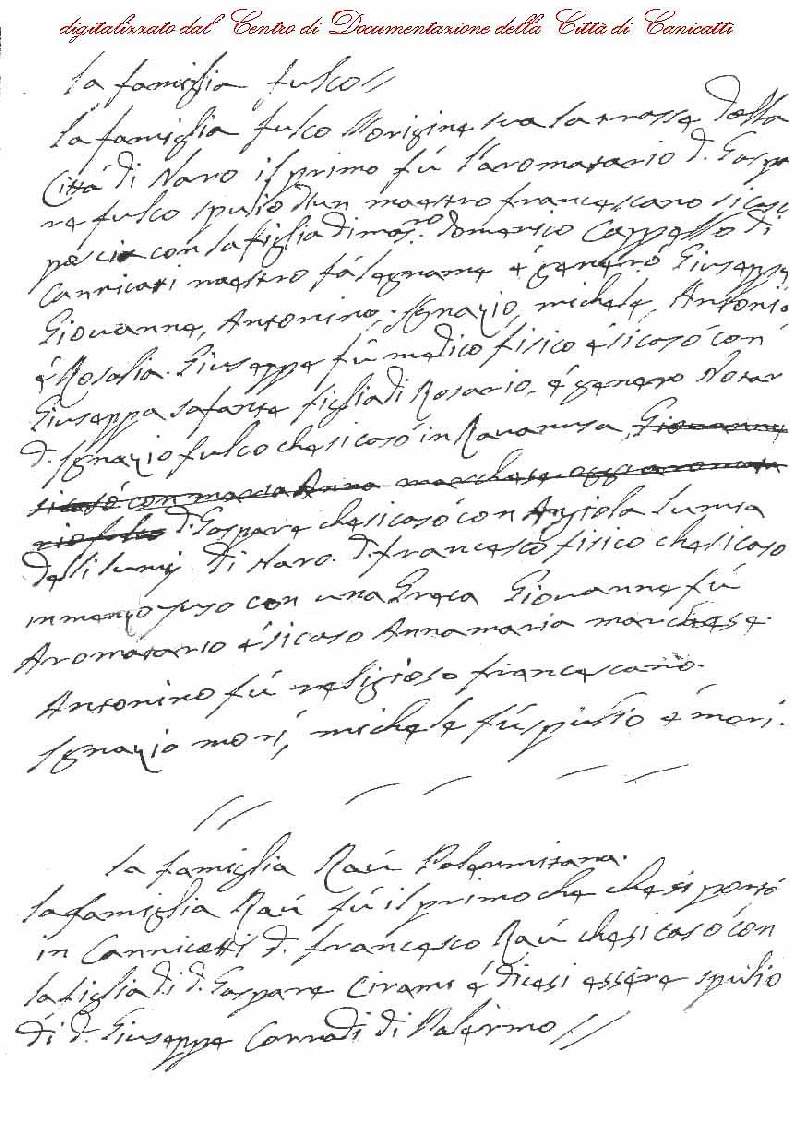 digitalizzato dal Centro di Documentazione della Città di Canicattì
La famiglia fulco //
La famiglia fulco l'origine sua la trasse della
Città di Naro il primo fú l'aromatario d. Gaspa
re fulco spulio d'un maestro francescano si casò
poscia con la figlia di mas.ro domenico Cappello di
Cannicatti maestro falegname é generó Giuseppe
Giovanne, Antonino, Ignazio, michele, Antonio
é Rosalia. Giuseppe fú medico fisico é si casó con
Giuseppa safante figlia di Rosario, é genero Notar
d. Ignazio fulco che si casó in Ravanusa, Giovanne
si casó con maria Anna marchese aromata
rio fulco d. Gaspare che si casó con Angiola Lumia
delli Lumij di Naro. d. francesco fisico che si caso
in con una Greca Giovanne fú
Aromatario é si caso Annamaria marchese.
Antonino fú religioso francescano.
Ignazio morí, michele fú spulio é morí.
La famiglia Raú Palermitana.
La famiglia Raú fú il primo che che si portó
in Cannicatti d. francesco Raú che si casó con
la figlia di d. Gaspare Cirami é dicesi essere spulio
di d. Giuseppe Corradi di Palermo //